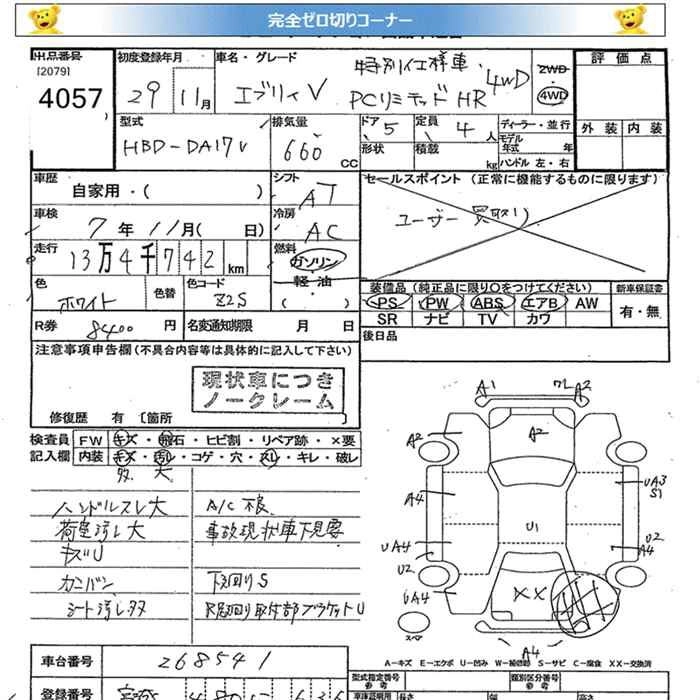 完全ゼロ切りコーナー
出品番号
[2079]
4057
初度登録年月
29 11月
車名・グレード
エブリィV
PCリミテッド HR 4WD
2WD・4WD
評価点
外装 内装
型式
HBD-DA17V
排気量
660 CC
ドア 5
形状
定員 4人
積載 kg
ディーラー・並行
モデル年式 年
ハンドル 左・右
車歴
自家用・( )
シフト
AT
セールスポイント (正常に機能するものに限ります)
ユーザー買取り
車検
7年11月( 日)
冷房
AC
走行
13万4千742km
燃料
ガソリン
軽油
( )
色
ホワイト
色替
色コード
Z2S
装備品 (純正品に限り〇をつけてください)
PS PW ABS エアB AW
SR ナビ TV カワ
新車保証書
有・無
R券 8400円
名変通知期限 月 日
後日品
注意事項申告欄(不具合内容等は具体的に記入して下さい)
現状車につき
ノークレーム
修復歴 有 〔箇所
検査員記入欄
FW キズ・飛石・ヒビ割・リペア跡・×要
内装 キズ・汚れ・コゲ・穴・スレ・キレ・破レ
多 大
ハンドルスレ大
A/C不良
荷室汚レ大
事故現状車下見要
キズU
カンバン
下回りS
シート汚レ多
A1
A2
A2
A2
A4
UA3
S1
U1
UA4
U2
A4
U2
UA4
XX
A4
スペア
A-キズ E-エクボ U-凹み W-補修跡 S-サビ C-腐食 XX-交換済
車台番号
268541
登録番号
型式指定番号
参考
類別区分番号
参考